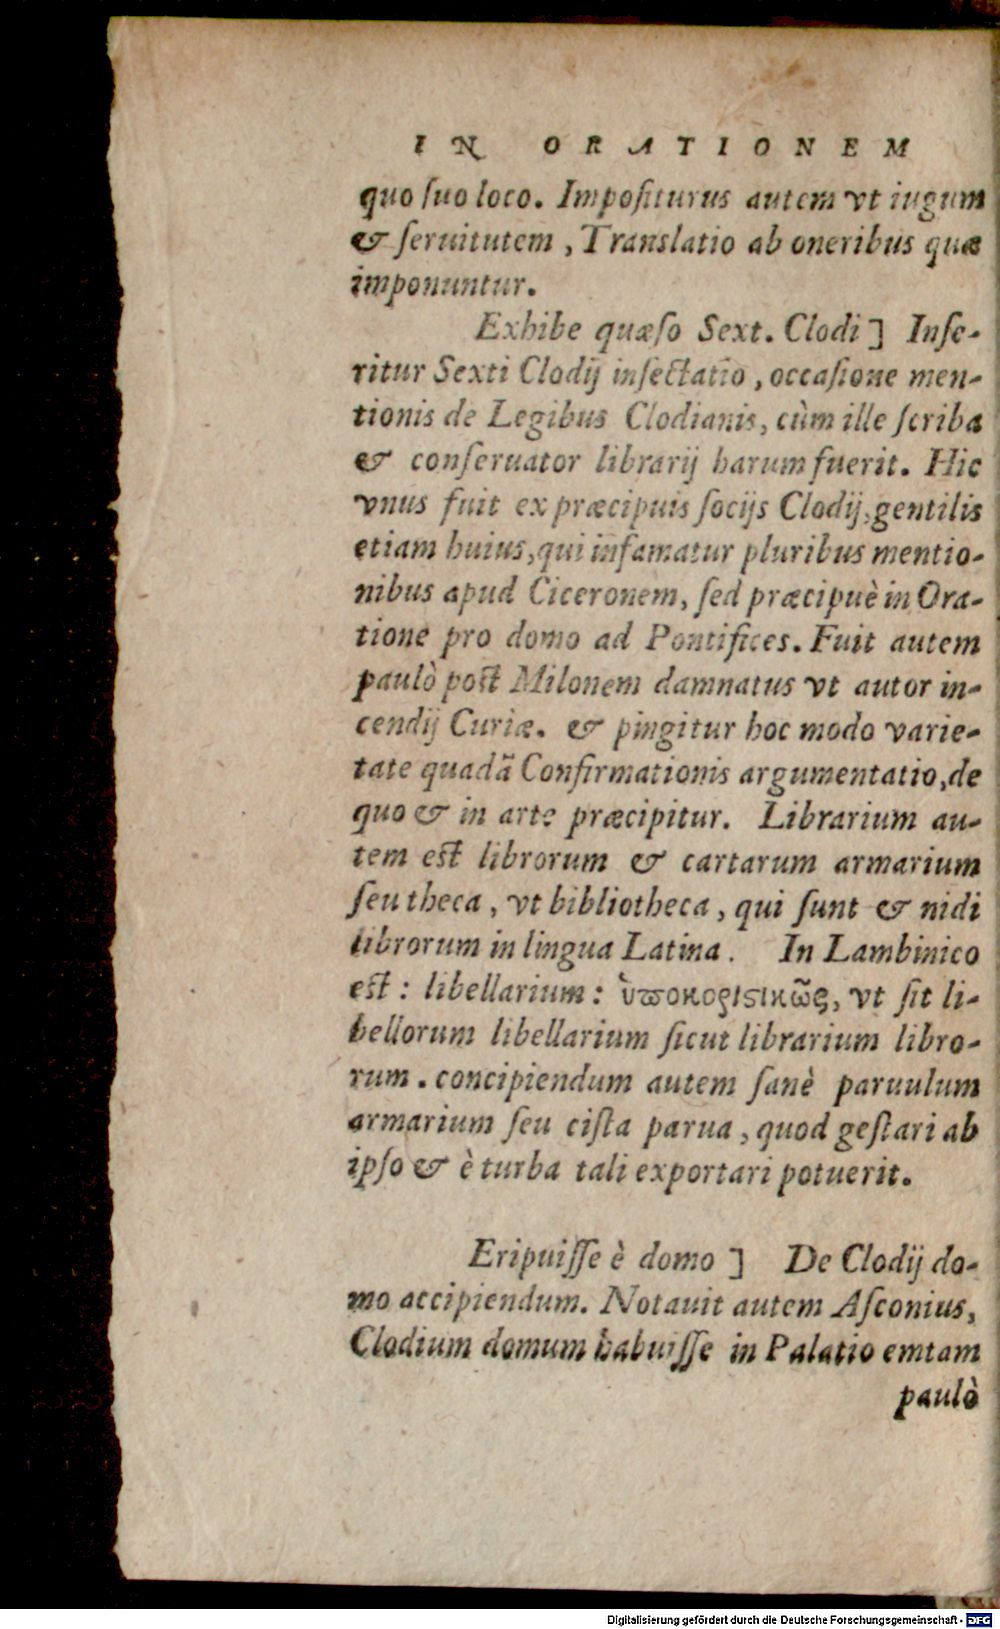 IN ORATIONEM
quo ſuo loco. Impoſiturus autem vt iugum
& ſeruitutem, Translatio ab oneribus quæ
imponuntur.
Exhibe quæſo Sext. Clodi] Inſe-
ritur Sexti Clodij inſectatio, occaſione men-
tionis de Legibus Clodianis, cùm ille ſcriba
& conſeruator librarij harum fuerit. Hic
vnus fuit ex præcipuis ſocijs Clodij, gentilis
etiam huius, qui infamatur pluribus mentio-
nibus apud Ciceronem, ſed præcipuè in Ora-
tione pro domo ad Pontifices. Fuit autem
paulò poſt Milonem damnatus vt autor in-
cendij Curiæ. & pingitur hoc modo varie-
tate quadã Confirmationis argumentatio, de
quo & in arte præcipitur. Librarium au-
tem eſt librorum & cartarum armarium
ſeu theca, vt bibliotheca, qui ſunt & nidi
librorum in lingua Latina. In Lambinico
eſt: libellarium: ὑποκοριϛικῶς, vt ſit li-
bellorum libellarium ſicut librarium libro-
rum. concipiendum autem ſanè paruulum
armarium ſeu ciſta parua, quod geſtari ab
ipſo & è turba tali exportari potuerit.
Eripuiſſe è domo] De Clodij do-
mo accipiendum. Notauit autem Aſconius,
Clodium domum habuiſſe in Palatio emtam
paulò
Digitalisierung gefördert durch die Deutsche Forschungsgemeinschaft - DFG